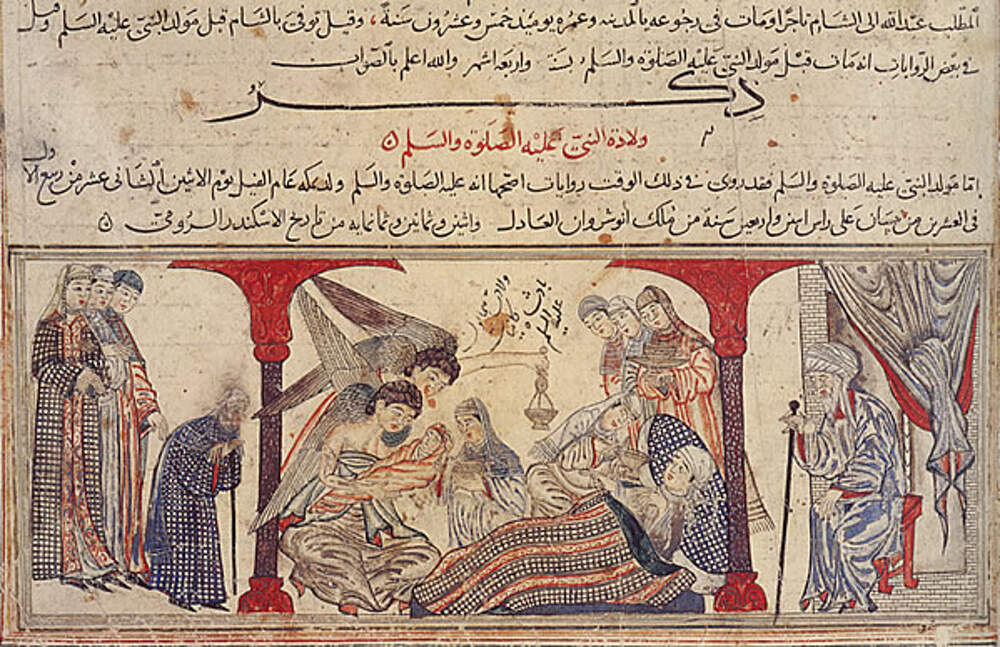 المطلب عبد الله الى الشام تاجرا ومات فى رجوعه بالمدينه وعمره يوميذ خمس وعشرون سنة وقيل توفى بالشام قبل مولد النبى عليه السلم وقيل
فى بعض الروايات انه مات قبل مولد النبى عليه الصلوة والسلم واربعة اشهر والله اعلم بالصواب
ذكر
ولادة النبى عليه الصلوة والسلم
اما مولد النبى عليه الصلوة والسلم فقد روى فى ذلك الوقت روايات اصحها انه عليه الصلوة والسلم ولد بمكه عام الفيل يوم الاثنين الثانى عشر من ربيع الاول
فى العشرين من نيسان على راس اثنين واربعين سنة من ملك انوشروان العادل واثنين وثمانين وثمانمايه من تاريخ الاسكندر الرومى
ولادت
عليه السلم